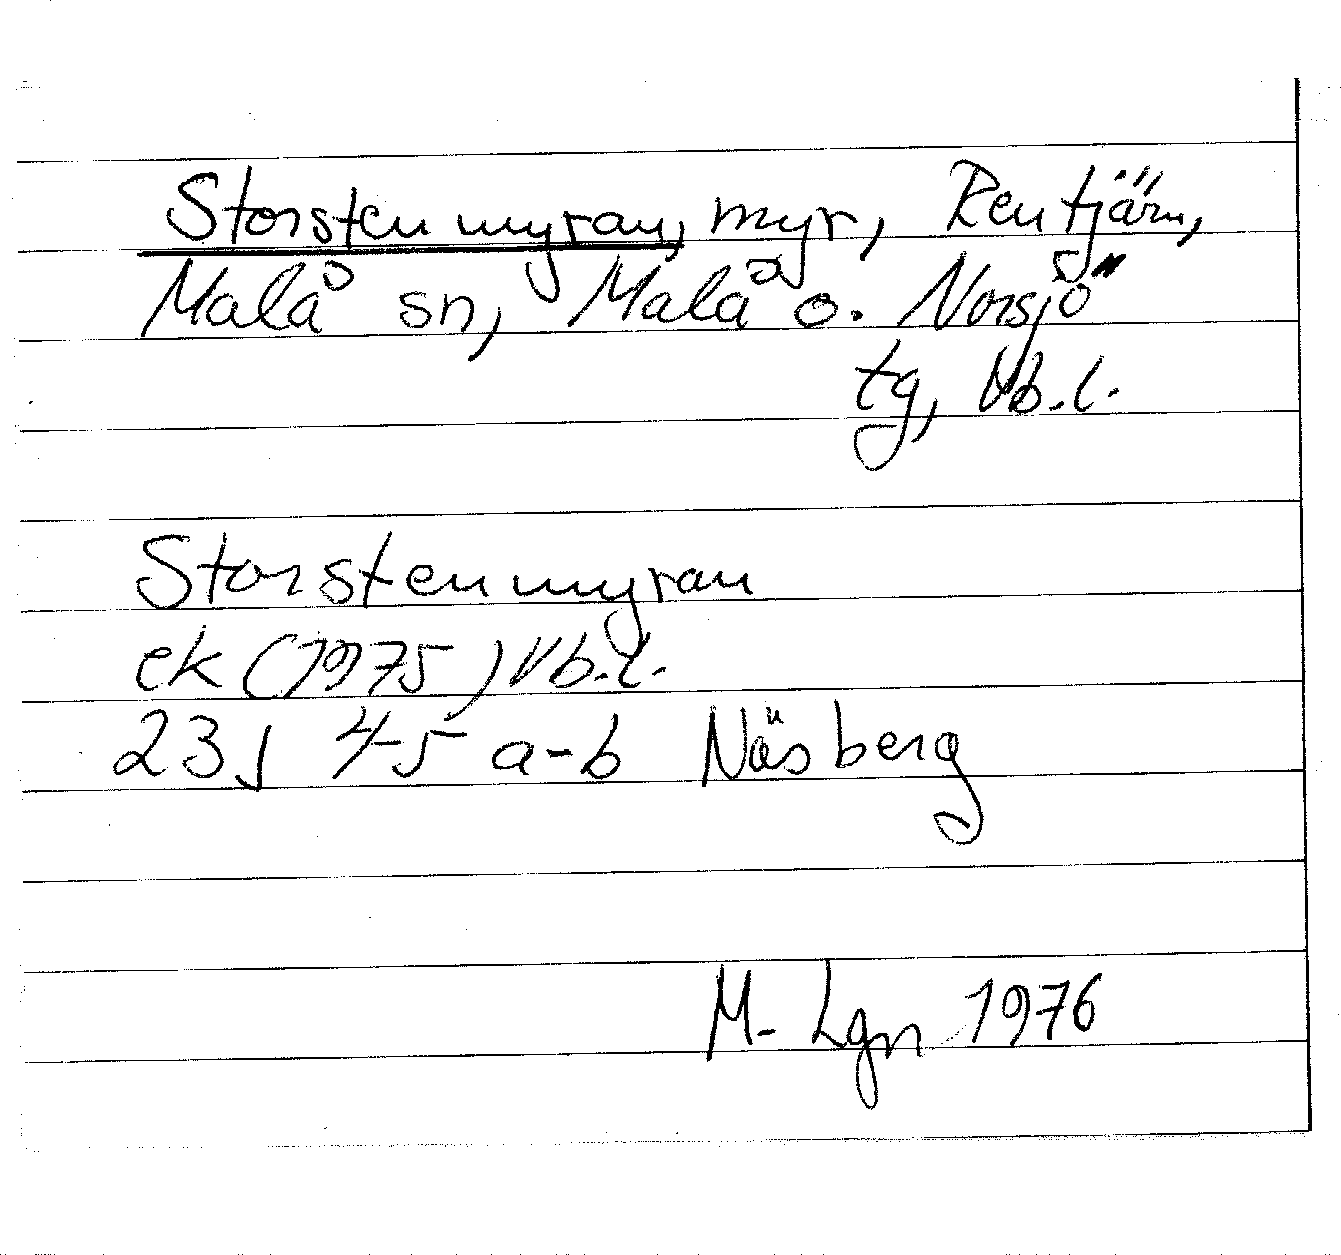 Storstenmyran, myr, Rentjärn,
Malå sn, Malå o. Norsjö
tg, Vb.l.
Storstenmyran
ek (1975) Vb.l.
23J 4-5 a-b Näsberg
M. Lgn 1976